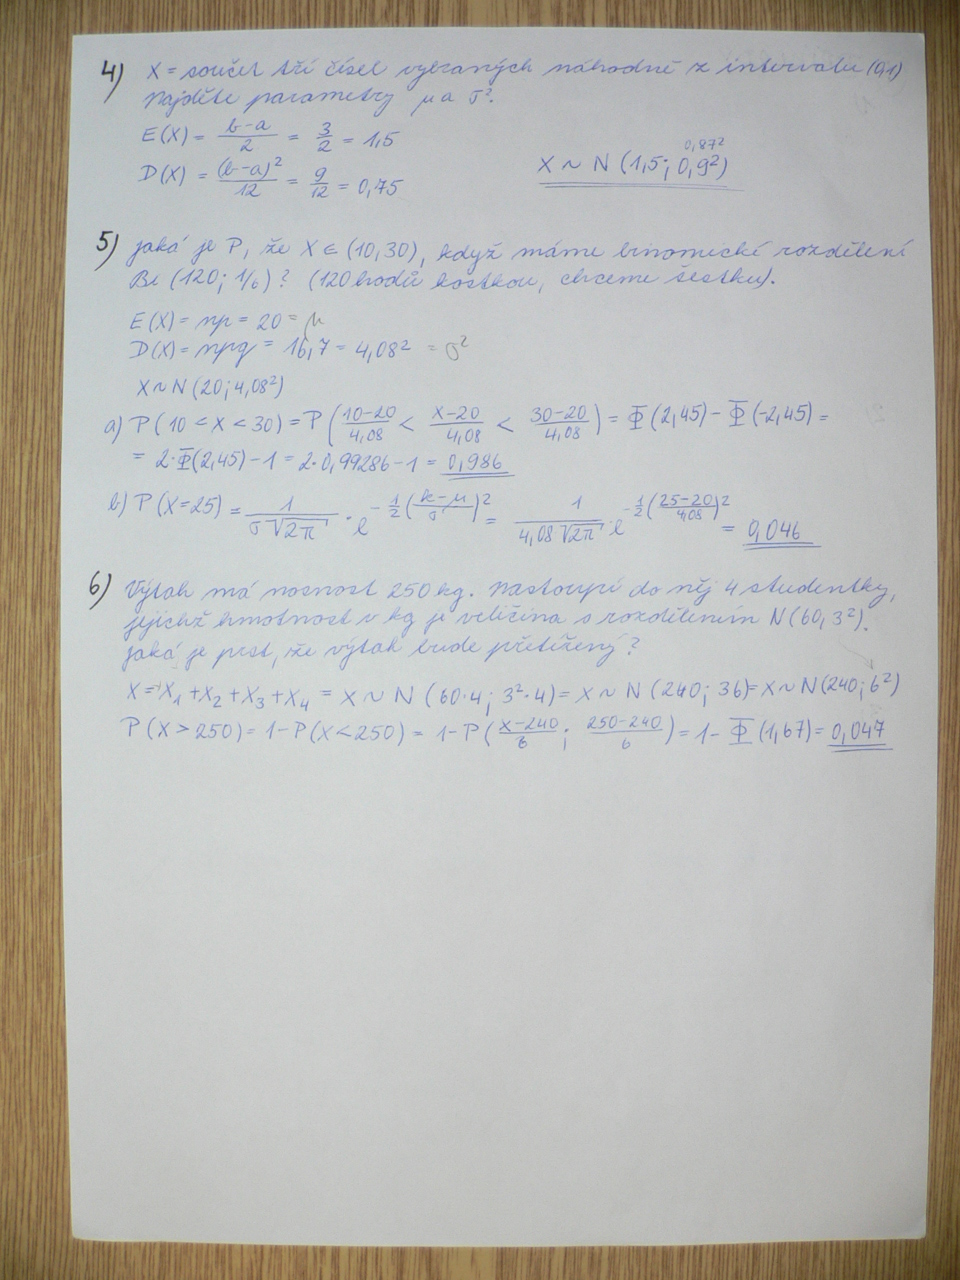 4) X = součet tří čísel vybraných náhodně z intervalu (0,1)
Najděte parametry μ a σ².
E(X) = (b-a)/2 = 3/2 = 1,5
D(X) = (b-a)²/12 = 9/12 = 0,75
0,87²
X ~ N (1,5; 0,9²)
5) Jaká je P, že X ∈ (10,30), když máme binomické rozdělení
Bi (120; 1/6)? (120 hodů kostkou, chceme šestku).
E(X) = np = 20 = μ
D(X) = npq = 16,7 = 4,08² = σ²
X ~ N (20; 4,08²)
a) P(10 < X < 30) = P((10-20)/4,08 < (X-20)/4,08 < (30-20)/4,08) = Φ(2,45) - Φ(-2,45) =
= 2·Φ(2,45) - 1 = 2·0,99286 - 1 = 0,986
b) P(X=25) = 1/(σ√2π) · e^(-1/2((k-μ)/σ)²) = 1/(4,08√2π) · e^(-1/2((25-20)/4,08)²) = 0,046
6) Výtah má nosnost 250 kg. Nastoupí do něj 4 studentky,
jejichž hmotnost v kg je veličina s rozdělením N(60, 3²).
Jaká je pst, že výtah bude přetížený?
X = X₁ + X₂ + X₃ + X₄ = X ~ N (60·4; 3²·4) = X ~ N (240; 36) = X ~ N(240; 6²)
P(X > 250) = 1 - P(X < 250) = 1 - P((X-240)/6 ; (250-240)/6) = 1 - Φ(1,67) = 0,047